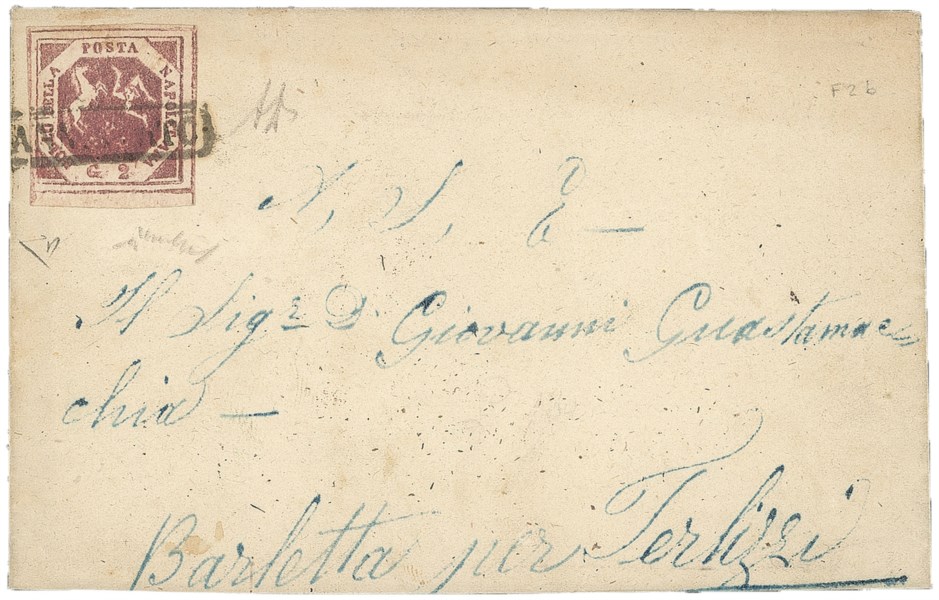 POSTA
NAPOLETANA
BOLLO DELLA
G. 2
F2b
A. S. E —
Il Sigr. D. Giovanni Guastamac=
chia —
Barletta per Terlizzi